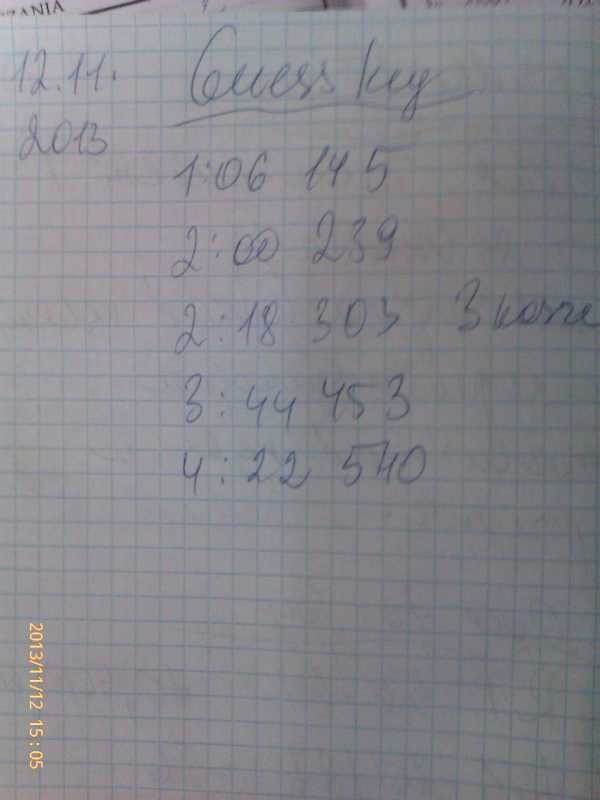 12.11.
2013
Guess key
1:06 145
2:00 239
2:18 303 3
3:44 453
4:22 540
2013/11/12 15:05